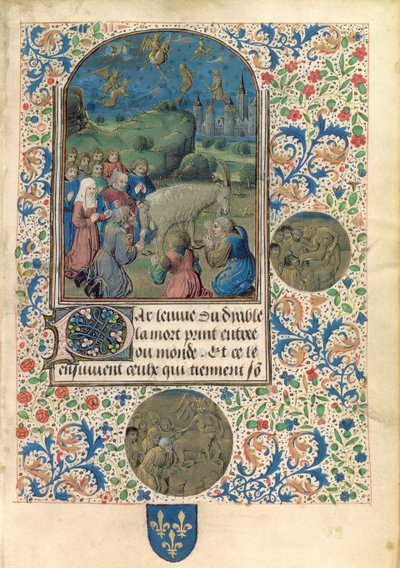 PAr lenuie du dyable
la mort print entree
ou monde. Et ce le
ensuiuent ceulx qui tiennent sō